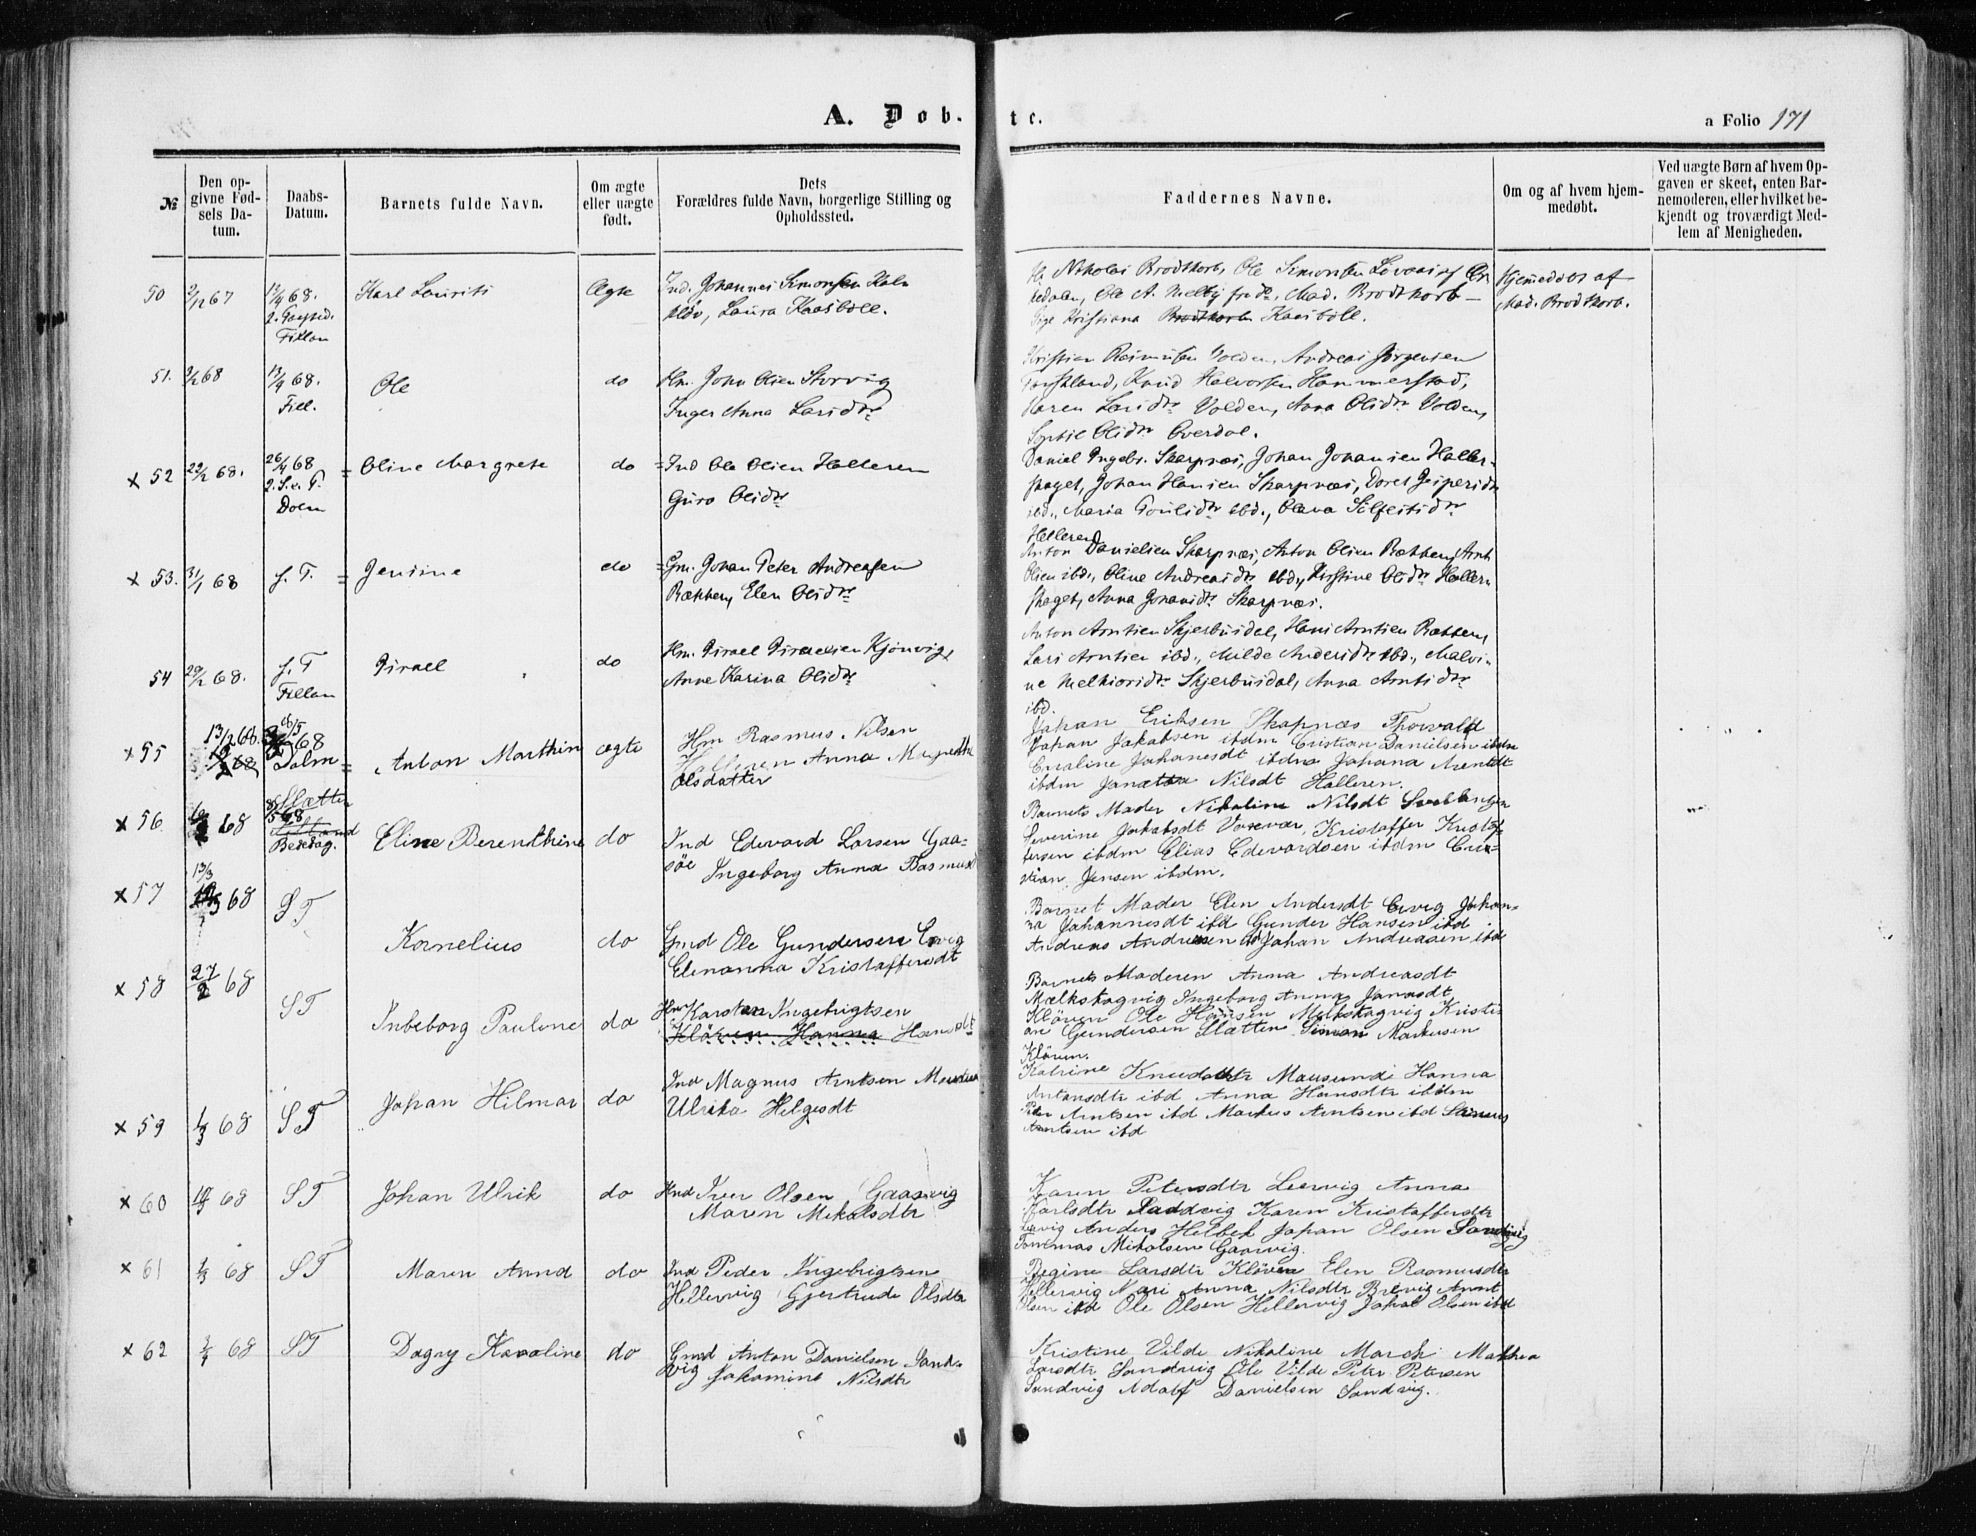 A. Dob. te.
a Folio 171
№
Den op-
givne Fød-
sels Da-
tum.
Daabs-
Datum.
Barnets fulde Navn.
Om ægte
eller uægte
født.
Dets
Forældres fulde Navn, borgerlige Stilling og
Opholdssted.
Faddernes Navne.
Om og af hvem hjem-
medøbt.
Ved uægte Børn af hvem Op-
gaven er skeet, enten Bar-
nemoderen, eller hvilket be-
kjendt og troværdigt Med-
lem af Menigheden.
50
67
68.
Fillan
Karl Laurits
Ægte
Ind. Johannes Simonsen
Laura Kaasböll.
Nikolai Brodtkorb, Ole Simonsen
Ole A. Melby Mad. Brodtkorb
Pige Kristiana Brodtkorb Kaasböll.
Hjemmedöbt af
Mad. Brodtkorb.
51.
68
68.
Fill.
Ole
do
Hm. John Olsen Storvig
Inger Anna Larsdtr
Kristian Rasmussen Volden, Andreas Jörgensen
Knud Halvorsen Hammerstad,
Karen Larsdtr Volden, Anna Olsdtr Volden,
Olsdtr Överdal.
x 52
22/2 68.
26/4 68
Dolm
= Oline Margrete
do
= Ind Ole Olsen Halleren
Guro Olsdtr
Daniel Ingebr. Skarpnæs, Johan Johansen Haller-
skaget, Johan Hansen Skarpnæs, Doret Jespersdtr
ibd., Maria Poulsdtr ibd., Olava
Helleren
x 53.
31/1 68
s. T. =
Jensine
do
= Gm. Johan Peter Andreasen
Ræbben, Elen Olsdtr
Anton Danielsen Skarpnæs, Anton Olsen Ræbben, Arnt
Olsen ibd., Oline Andreasdtr ibd., Kirstine Olsdtr Haller-
skaget, Anna Johansdtr Skarpnæs.
54
29/2 68.
s. T
Fillan
Israel
do
Hm. Israel Israelsen Kjönvig,
Anne Karina Olsdtr
Anton Arntsen Skjerbusdal, Hans Arntsen Ræbben,
Lars Arntsen ibd., Milde Andersdtr ibd., Malvi-
ne Melkiorsdtr Skjerbusdal, Anna Arntsdtr
ibd.
x 55
13/2 68.
68
Dolm =
Anton Marthin
ægte
Hm Rasmus Nilsen
Halleren Anna Magrethe
Olsdatter
Johan Eriksen Skapnæs Thorvald
Johan Jakobsen ibdm Cristian Danielsen ibdm
Caroline Johanesdt ibdm Johana Arentdt
ibdm Janetta Nilsdt Halleren.
x 56
68
Sletten
68
Bededag.
Eline Berenthine
do
Ind Edevard Larsen Gaa-
söe Ingeborg Anna Rasmusd
Barnets Moder Nikoline Nilsdt
Severine Jakobsdt Kristaffer Kristof-
fersen ibdm Elias Edevardsen ibdm Cris-
tian Jensen ibdm.
x 57
13/3
68
S T
Kornelius
do
Gmd Ole Gundersen Ervig
Elenanna Kristaffersdt
Barnet Moder Elen Andersdt Ervig Johan-
na Johannesdt ibd Gunder Hansen ibd
Andreas Andreasen ibd Johan Andreasen ibd
x 58
27/2 68
S T
Inbeborg Pauline
do
Hm Karsten Ingebrigtsen
Klöven Hanna Hansdt
Barnets Moderen Anna Andreasdt
Mælkskagvig Ingeborg Anna Jonasdt
Klöven Ole Hansen Melkskagvig Kristi-
an Gundersen Sletten Simon Markusen
Klöven.
x 59
1/3 68
S T
Johan Hilmar
do
Ind Magnus Arntsen
Ulrika Helgesdt
Katrine Knudsdtr Mausund Hanna
Antonsdtr ibd Anna Hansdtr ibdm
Peder Arntsen ibd Markus Arntsen ibd
Arntsen ibd
x 60
68
S T
Johan Ulrik
do
Ind Iver Olsen Gaasvig
Maren Mikalsdtr
Karen Petersdtr Leervig Anna
Karlsdtr Sandvig Karen Kristaffersdtr
Anders Helbek Johan Olsen Sandvig
Mikalsen Gaasvig.
x 61
68
S T
Maren Anna
do
Ind Peder Ingebrigtsen
Hellesvig Gjertrude Olsdtr
Regine Larsdtr Klöven Elen Rasmusdtr
Hellesvig Mari Anna Nilsdtr Arnt
Olsen ibd Ole Olsen Hellesvig Johan Olsen ibd
x 62
68
S T
Dagny Karoline
do
Gmd Anton Danielsen Sand-
vig Jakomine Nilsdtr
Kristine Vilde Nikoline March Mathea
Larsdtr Sandvig Ole Vilde Peter Petersen
Sandvig Adolf Danielsen Sandvig.